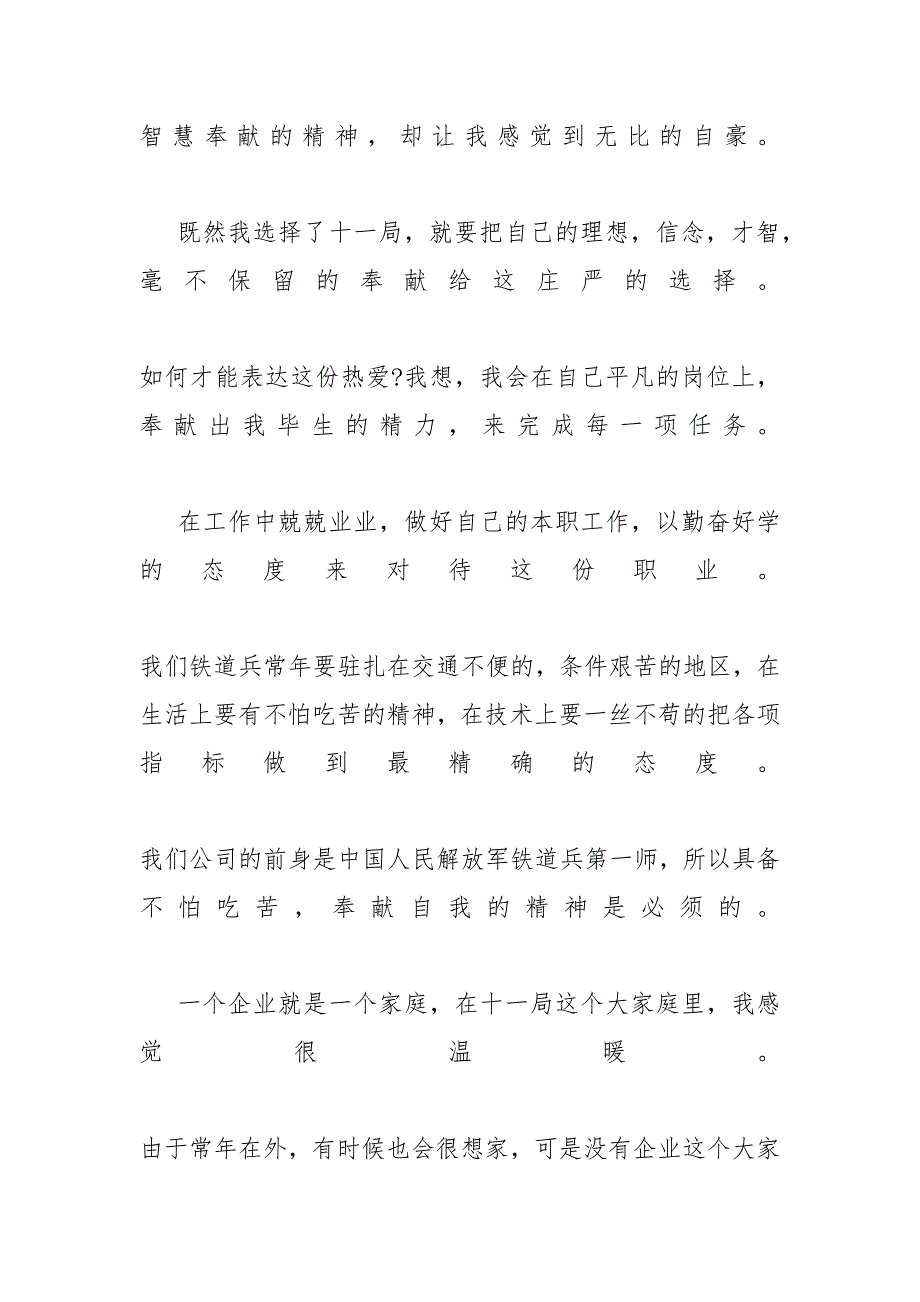 智慧奉献的精神，却让我感觉到无比的自豪。
既然我选择了十一局，就要把自己的理想，信念，才智，
毫不保留的奉献给这庄严的选择。
如何才能表达这份热爱?我想，我会在自己平凡的岗位上，
奉献出我毕生的精力，来完成每一项任务。
在工作中兢兢业业，做好自己的本职工作，以勤奋好学
的态度来对待这份职业。
我们铁道兵常年要驻扎在交通不便的，条件艰苦的地区，在
生活上要有不怕吃苦的精神，在技术上要一丝不苟的把各项
指标做到最精确的态度。
我们公司的前身是中国人民解放军铁道兵第一师，所以具备
不怕吃苦，奉献自我的精神是必须的。
一个企业就是一个家庭，在十一局这个大家庭里，我感
觉很温暖。
由于常年在外，有时候也会很想家，可是没有企业这个大家